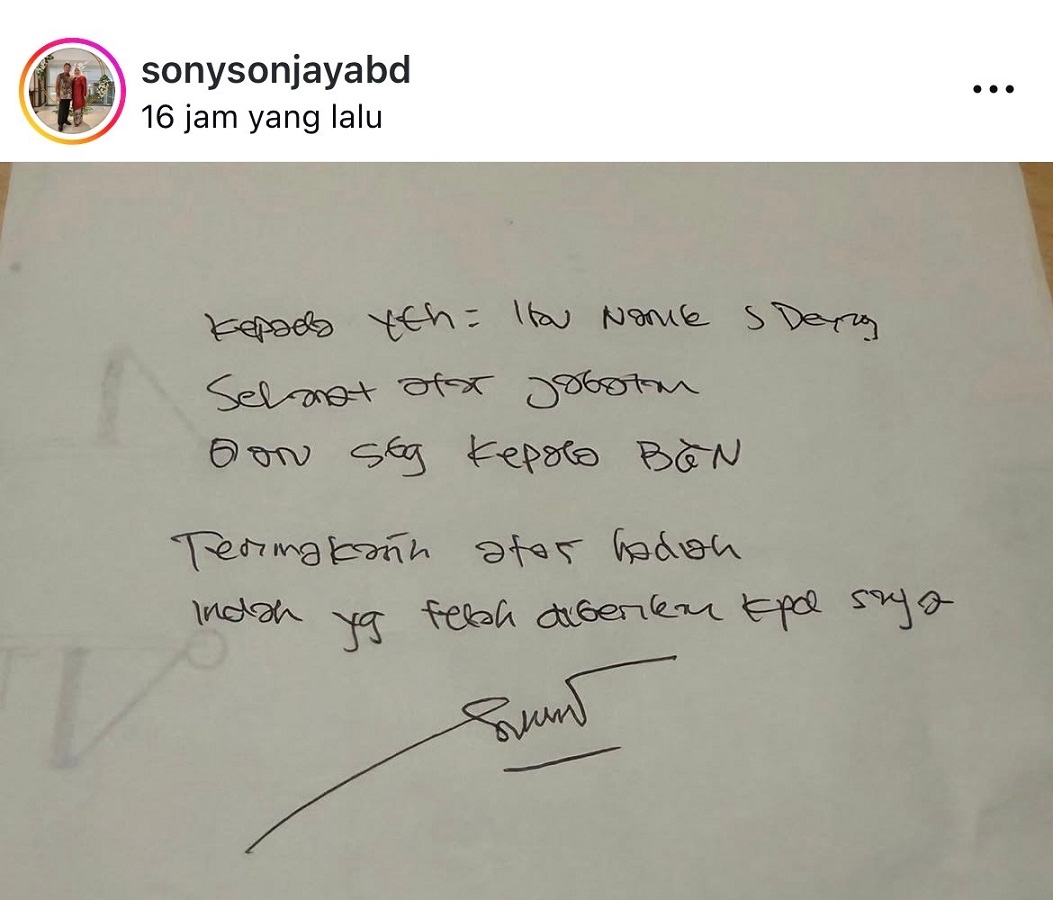 sonysonjayabd
16 jam yang lalu
Kepada Yth = Ibu Nanik S Deyang
Selamat atas jabatan
Dan sbg Kepala BGN
Terimakasih atas hadiah
Indah yg telah diberikan kpd saya